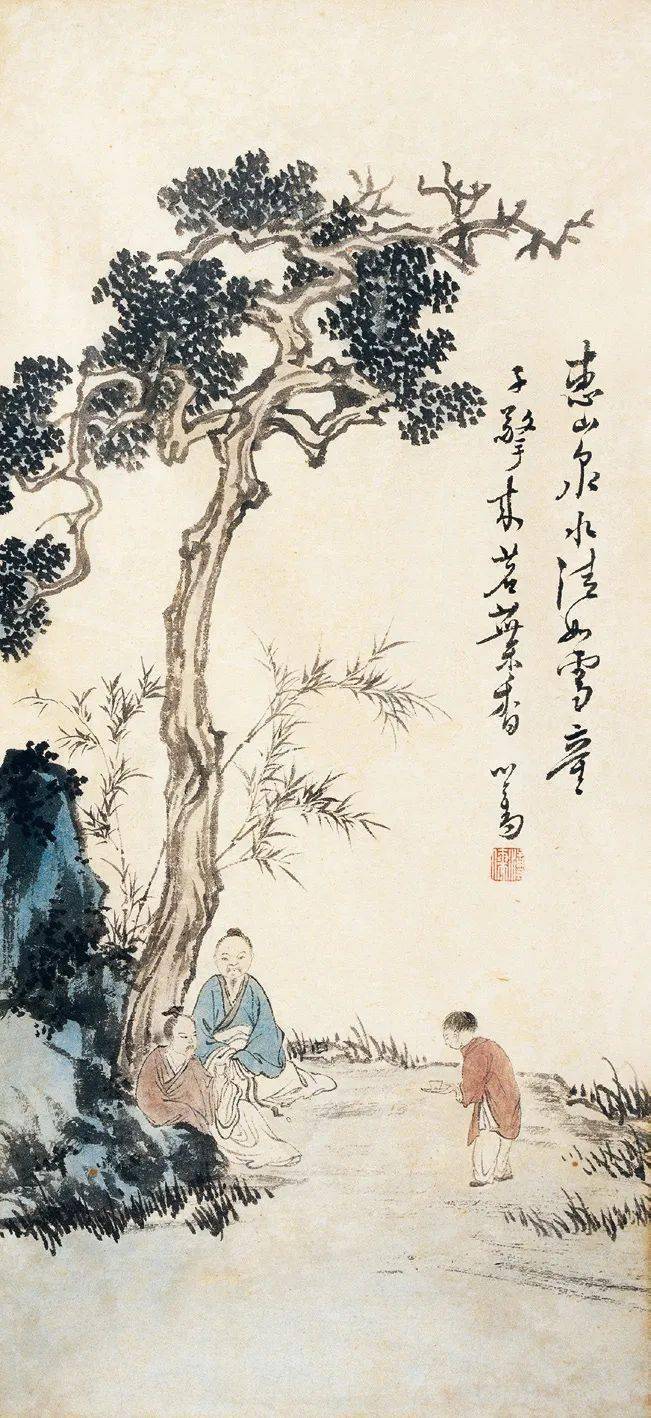 惠山泉水清如雪童
子擎来茗葉香 心畬